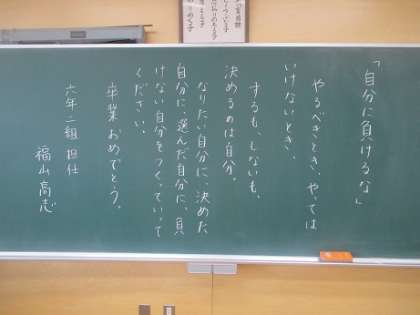 「自分に負けるな」
やるべきとき、やっては
いけないとき、
するも、しないも、
決めるのは自分。
なりたい自分に、決めた
自分に、選んだ自分に、負
けない自分をつくっていって
ください。
卒業おめでとう。
六年二組 担任
福山高志